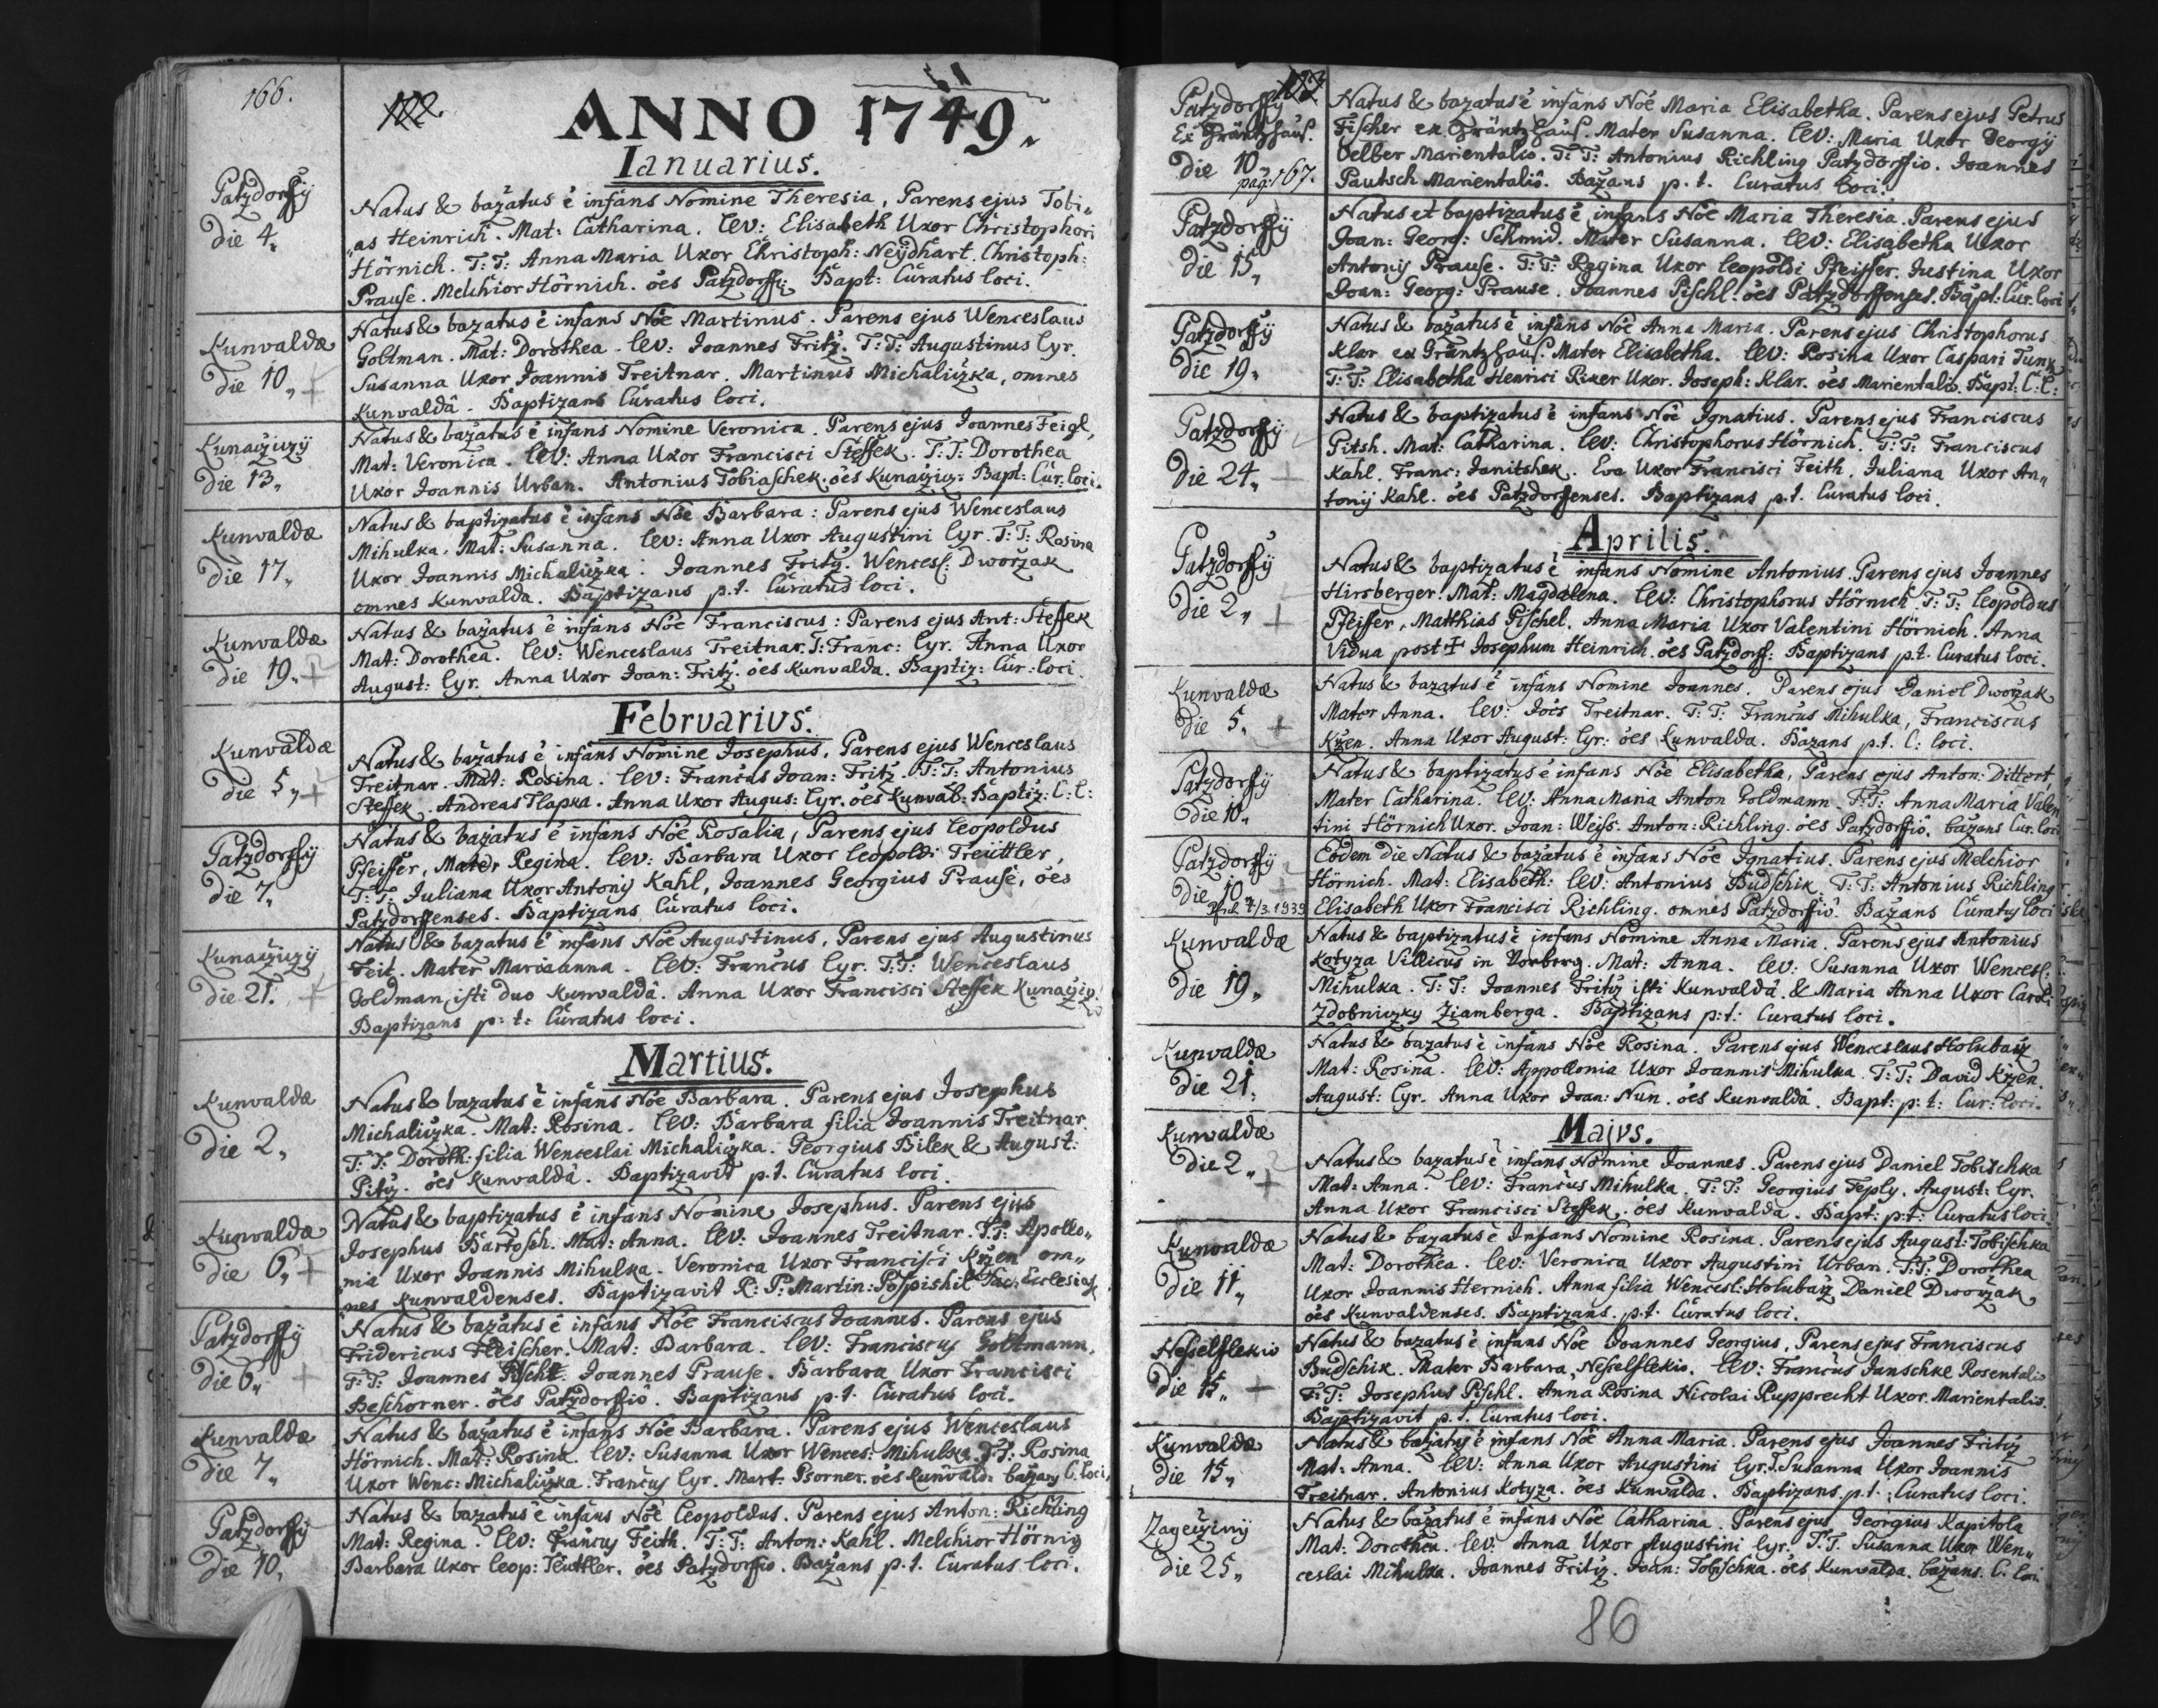 166.
122
ANNO 1749.
51
Ianuarius.
Patzdorffij
Die 4.
Natus & bazatus ē infans Nomine Theresia, Parens ejus Tobi„
„as Heinrich. Mat: Catharina. lev: Elisabeth Uxor Christophori
Hörnich. T: T: Anna Maria Uxor Christoph: Neÿdhart. Christoph:
Prause. Melchior Hörnich. oēs Patzdorff: Bapt: Curatus loci.
Kunvaldæ
Die 10„ +
Natus & bazatus ē infans Nōe Martinus. Parens ejus Wenceslaus
Goltman. Mat: Dorothea. lev: Joannes Fritz. T: T: Augustinus Cyr.
Susanna Uxor Joannis Treitnar. Martinus Michaliczka, omnes
Kunvaldâ. Baptizans Curatus loci.
Kunacziczij
Die 13„
Natus & bazatus ē infans Nomine Veronica. Parens ejus Joannes Feigl,
Mat: Veronica. lev: Anna Uxor Francisci Steffek. T: T: Dorothea
Uxor Joannis Urban. Antonius Tobiaschek. oēs Kunaczicz: Bapt: Cur: loci.
Kunvaldæ
Die 17„
Natus & baptizatus ē infans Nōe Barbara: Parens ejus Wenceslaus
Mihulka. Mat: Susanna. lev: Anna Uxor Augustini Cyr. T: T: Rosina
Uxor Joannis Michaliczka. Joannes Fritz. Wencesl: Dworzak
omnes Kunvalda. Baptizans p. t. Curatus loci.
Kunvaldæ
Die 19„ +
Natus & bazatus ē infans Nōe Franciscus: Parens ejus Ant: Steffek
Mat: Dorothea. lev: Wenceslaus Treitnar. T: Franc: Cyr. Anna Uxor
August: Cyr. Anna Uxor Joan: Fritz. oēs Kunvalda. Baptiz: Cur: loci.
Februarivs.
Kunvaldæ
Die 5„ +
Natus & bazatus ē infans Nomine Josephus. Parens ejus Wenceslaus
Treitnar. Mat: Rosina. lev: Francus Joan: Fritz. T: T: Antonius
Steffek. Andreas Tlapka. Anna Uxor Augus: Cyr. oēs Kunval: Baptiz: C: C:
Patzdorffij
Die 7„
Natus & bazatus ē infans Nōe Rosalia, Parens ejus Leopoldus
Pfeiffer, Mater Regina. lev: Barbara Uxor Leopoldi Treuttler,
T: T: Juliana Uxor Antonij Kahl, Joannes Georgius Prause, oēs
Patzdorffenses. Baptizans Curatus loci.
Kunacziczij
Die 21. +
Natus & bazatus ē infans Nōe Augustinus, Parens ejus Augustinus
Feit. Mater Mariaanna. lev: Francus Cyr. T: T: Wenceslaus
Goldman, isti duo Kunvaldâ. Anna Uxor Francisci Steffek
Baptizans p: t: Curatus loci.
Martius.
Kunvaldæ
Die 2„
Natus & bazatus ē infans Nōe Barbara. Parens ejus Josephus
Michaliczka. Mat: Rosina. lev: Barbara filia Joannis Treitnar
T: T: Doroth: filia Wenceslai Michaliczka. Georgius Bilek & August:
oēs Kunvaldâ. Baptizavit p. t. Curatus loci.
Kunvaldæ
Die 6„ +
Natus & baptizatus ē infans Nomine Josephus. Parens ejus
Josephus Bartosch. Mat: Anna. lev: Joannes Treitnar. T: T: Apollo„
nia Uxor Joannis Mihulka. Veronica Uxor Francisci Kržen om„
nes Kunvaldenses. Baptizavit R: P: Martin: Pospischil
Patzdorffij
Die 6„ +
Natus & bazatus ē infans Nōe Franciscus Joannes. Parens ejus
Fridericus Fleischer. Mat: Barbara. lev: Franciscus Goltmann,
T: T: Joannes Pischl. Joannes Prause. Barbara Uxor Francisci
Beschorner. oēs Patzdorffiô. Baptizans p. t. Curatus loci.
Kunvaldæ
Die 7„
Natus & bazatus ē infans Nōe Barbara. Parens ejus Wenceslaus
Hörnich. Mat: Rosina. lev: Susanna Uxor Wences: Mihulka. T: T: Rosina
Uxor Wenc: Michaliczka. Francus Cyr. Mart: oēs Kunvald: bazans C. loci.
Patzdorffij
Die 10„
Natus & bazatus ē infans Nōe Leopoldus. Parens ejus Anton: Richling
Mat: Regina. lev: Francus Feith. T: T: Anton: Kahl. Melchior Hörnig
Barbara Uxor Leop: Teuttler. oēs Patzdorffio. Bazans p. t. Curatus loci.
123
Patzdorffij
Ex Gräntzhaus.
Die 10„
pag. 167.
Natus & bazatus ē infans Nōe Maria Elisabetha. Parens ejus Petrus
Fischer ex Gräntzhaus. Mater Susanna. lev: Maria Uxor Georgij
Oelber Marientalio. T: T: Antonius Richling Patzdorffio. Joannes
Pautsch Marientaliô. Bazans p. t. Curatus loci.
Patzdorffij
Die 15„
Natus et baptizatus ē infans Nōe Maria Theresia. Parens ejus
Joan: Georg: Schmid. Mater Susanna. lev: Elisabetha Uxor
Antonij Prause. T: T: Regina Uxor Leopoldi Pfeiffer. Justina Uxor
Joan: Georg: Prause. Joannes Pischl. oēs Patzdorffenses. Bapt: Cur. loci
Patzdorffij
Die 19„
Natus & bazatus ē infans Nōe Anna Maria. Parens ejus Christophorus
Klar ex Gräntzhaus. Mater Elisabetha. lev: Rosina Uxor Caspari Tunk
T: T: Elisabetha Henrici Rixer Uxor. Joseph: Klar. oēs Marientalio. Bapt: C: C:
Patzdorffij
Die 24„
Natus & baptizatus ē infans Nōe Ignatius. Parens ejus Franciscus
Pitsh. Mat: Catharina. lev: Christophorus Hörnich. T: T: Franciscus
Kahl. Franc: Janitshek. Eva Uxor Francisci Feith. Juliana Uxor An„
tonij Kahl. oēs Patzdorffenses. Baptizans p. t. Curatus loci.
Aprilis.
Patzdorffij
Die 2„ +
Natus & baptizatus ē infans Nomine Antonius. Parens ejus Joannes
Hirsberger. Mat: Magdalena. lev: Christophorus Hörnich. T: T: Leopoldus
Pfeiffer, Matthias Pischel. Anna Maria Uxor Valentini Hörnich. Anna
Vidua post ✝ Josephum Heinrich. oēs Patzdorff: Baptizans p. t. Curatus loci.
Kunvaldæ
Die 5. +
Natus & bazatus ē infans Nomine Joannes. Parens ejus Daniel Dworzak
Mater Anna. lev: Joēs Treitnar. T: T: Francus Mihulka, Franciscus
Kržen. Anna Uxor August: Cyr: oēs Kunvalda. Bazans p. t. C: loci.
Patzdorffij
Die 10„
Natus & baptizatus ē infans Nōe Elisabetha, Parens ejus Anton: Dittert,
Mater Catharina. lev: Anna Maria Anton Goldmann. T: T: Anna Maria Valen
tini Hörnich Uxor. Joan: Weiss. Anton: Richling. oēs Patzdorffiô. bazans Cur. loci
Patzdorffij
Die 10
7/3. 1939
Eodem die Natus & bazatus ē infans Nōe Ignatius. Parens ejus Melchior
Hörnich. Mat: Elisabeth: lev: Antonius Budschik. T: T: Antonius Richling
Elisabeth Uxor Francisci Richling. omnes Patzdorffiô. Bazans Curatus loci
Kunvaldæ
Die 19„
Natus & baptizatus ē infans Nomine Anna Maria. Parens ejus Antonius
Kotyza Villicus in Vorberg. Mat: Anna. lev: Susanna Uxor Wencesl:
Mihulka. T: T: Joannes Fritz isti Kunvaldâ. & Maria Anna Uxor Caroli
Zdobniczky Ziamberga. Baptizans p: t: Curatus loci.
Kunvaldæ
Die 21.
Natus & bazatus ē infans Nōe Rosina. Parens ejus Wenceslaus Holubarz
Mat: Rosina. lev: Appollonia Uxor Joannis Mihulka. T: T: David Kržen.
August: Cyr. Anna Uxor Joan: Nun. oēs Kunvaldâ. Bapt: p: t: Cur: loci.
Majvs.
Kunvaldæ
Die 2„ +
Natus & bazatus ē infans Nomine Joannes. Parens ejus Daniel Tobischka
Mat: Anna. lev: Francus Mihulka. T: T: Georgius Teply. August: Cyr.
Anna Uxor Francisci Steffek. oēs Kunvalda. Bapt: p: t: Curatus loci.
Kunvaldæ
Die 11„
Natus & bazatus ē Infans Nomine Rosina. Parens ejus August: Tobischka
Mat: Dorothea. lev: Veronica Uxor Augustini Urban. T: T: Dorothea
Uxor Joannis Hernich. Anna filia Wencesl: Holubarz Daniel Dworzak
oēs Kunvaldenses. Baptizans. p. t. Curatus loci.
Nesselflekio
Die 15„ +
Natus & bazatus ē infans Nōe Joannes Georgius, Parens ejus Franciscus
Budschik. Mater Barbara, Nesselflekio. lev: Francus Janschke Rosentalio
T: T: Josephus Pischl. Anna Rosina Nicolai Rupprecht Uxor. Marientalio.
Baptizavit p. t. Curatus loci.
Kunvaldæ
Die 15„
Natus & bazatus ē infans Nōe Anna Maria. Parens ejus Joannes Fritz
Mat: Anna. lev: Anna Uxor Augustini Cyr. T. Susanna Uxor Joannis
Treitnar. Antonius Kotyza. oēs Kunvalda. Baptizans. p. t. Curatus loci.
Zageczinij
Die 25„
Natus & bazatus ē infans Nōe Catharina. Parens ejus Georgius Kapitola
Mat: Dorothea. lev: Anna Uxor Augustini Cyr. T: T. Susanna Uxor Wen„
ceslai Mihulka. Joannes Fritz. Joan: Tobischka. oēs Kunvalda. bazans. C. loci
86